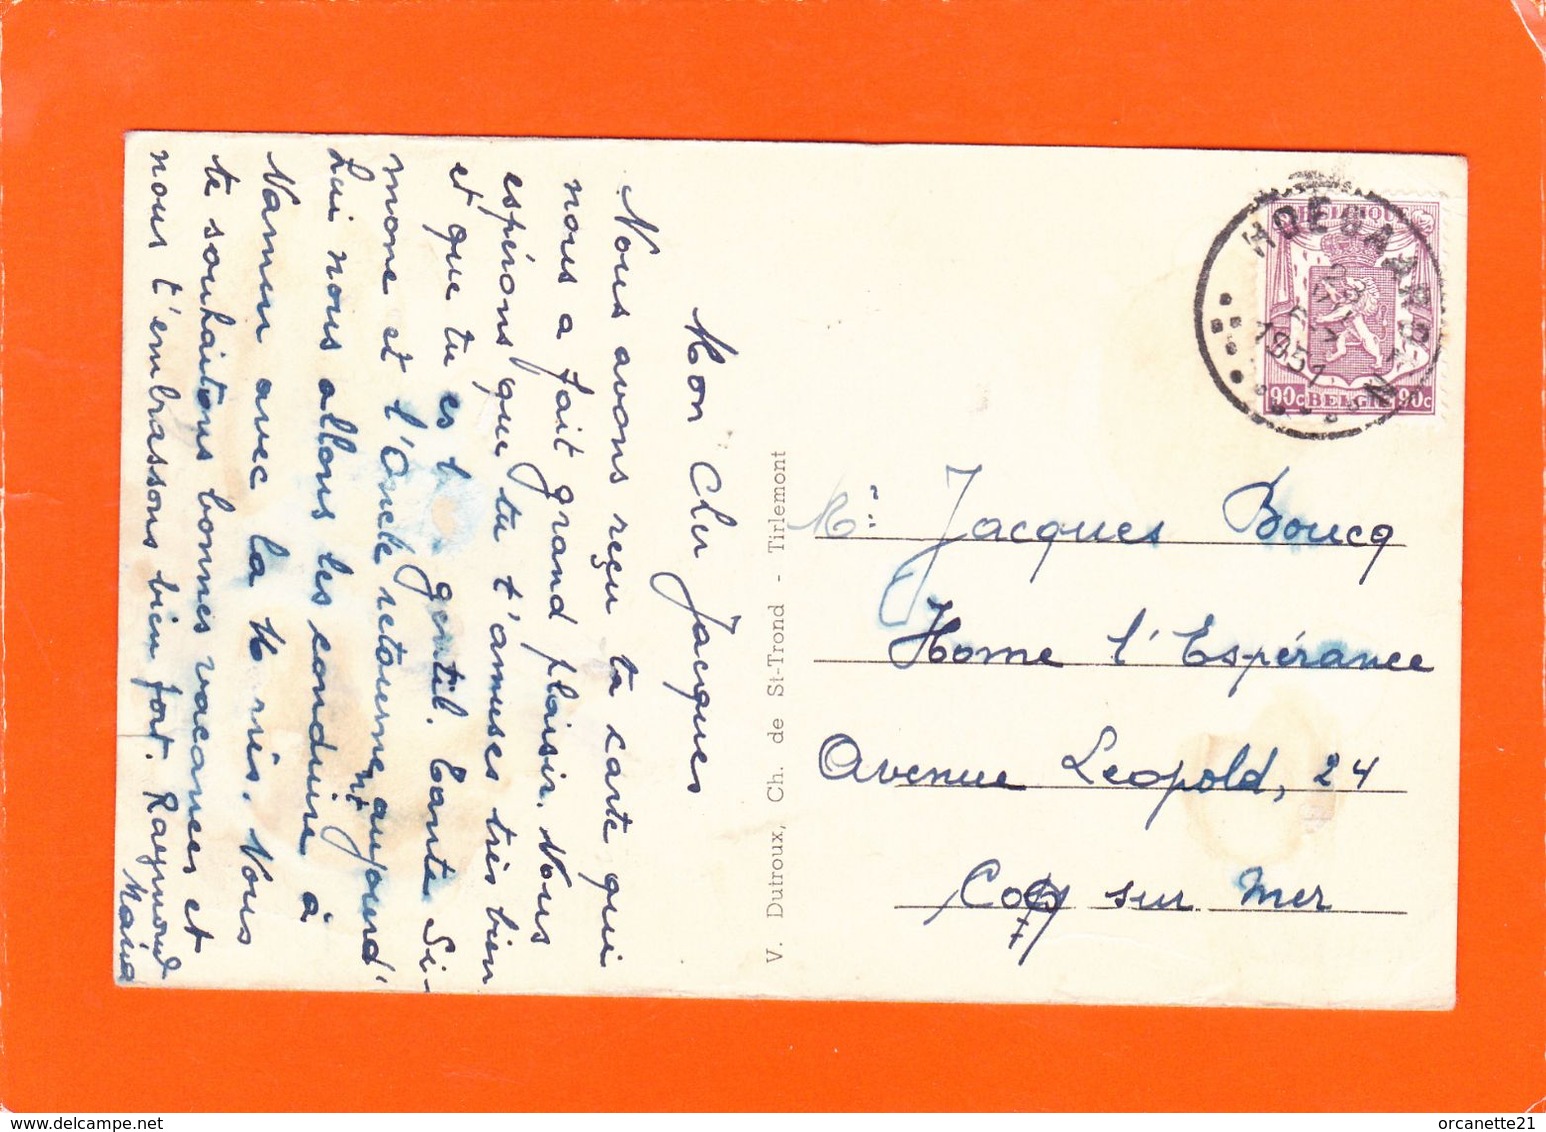 Mon Cher Jacques
Nous avons reçu ta carte qui
nous a fait grand plaisir. Nous
espérons que tu t'amuses très bien
et que tu es gentil. Tante Si-
mone et l'Oncle retournent aujourd'
hui nous allons les conduire à
Namur avec la Mercédès. Nous
te souhaitons bonnes vacances et
nous t'embrassons bien fort. Raymond
Maria
V. Dutroux, Ch. de St-Trond - Tirlemont
HOEGAARDEN
1951
BELGIQUE
90c BELGIE 90c
Mr. Jacques Boucq
Home l'Espérance
Avenue Leopold, 24
Coq sur Mer
orcanette21